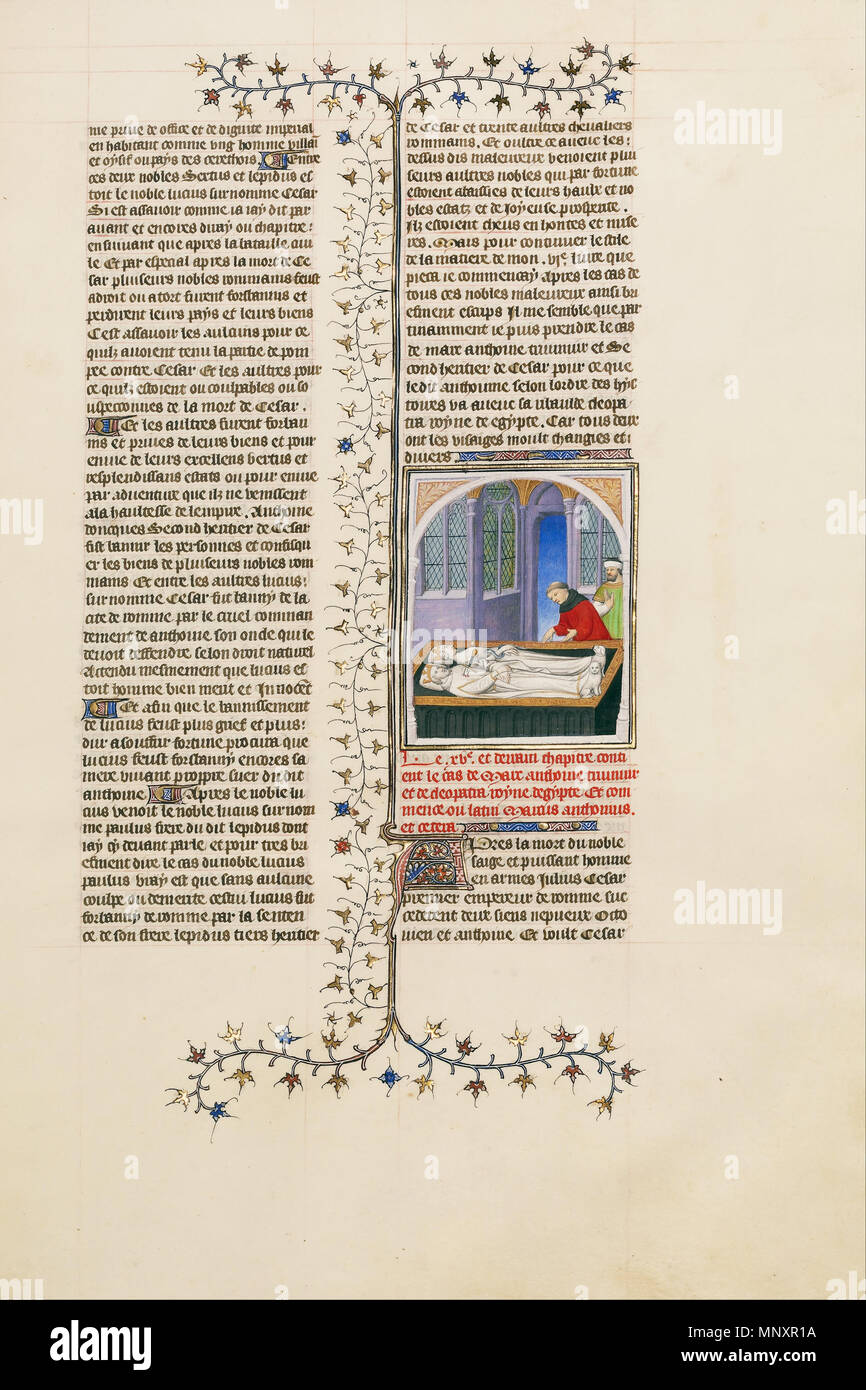 me prive de office et de dignite imperial
en habitant comme ung homme villai
et oysif ou pays des cerethois. Entre
ces deux nobles Sertus et lepidus es
toit le noble lucius surnomme Cesar
Si est assavoir comme ia iay dit par
avant et encores diray ou chapitre
ensuivant que apres la bataille civi
le Et par especial apres la mort de Ce
sar pluiseurs nobles rommains feust
adroit ou atort furent forbannis et
perdirent leurs pays et leurs biens
Cest assavoir les aulcuns pour ce
quilz avoient tenu la partie de pom
pee contre Cesar Et les aultres pour
ce quilz estoient ou coulpables ou so
uspeconnes de la mort de Cesar.
Et les aultres furent forban
nis et prives de leurs biens et pour
envie de leurs excellens vertus et
resplendissans estats ou pour envie
par adventure que ilz ne venissent
ala haultesse de lempire. Anthoine
doncques Second heritier de Cesar
fist bannir les personnes et confisqu
er les biens de pluiseurs nobles rom
mains Et entre les aultres lucius
surnomme Cesar fut banny de la
cite de romme par le cruel comman
dement de anthoine son oncle qui le
devoit deffendre selon droit naturel
Attendu mesmement que lucius es
toit homme bien meur et Innocet
Et afin que le bannissement
de lucius feust plus grief et plus
dur a souffrir fortune procura que
lucius feust forbanny encores sa
mere vivant propre suer du dit
anthoine. Apres le noble lu
cius venoit le noble lucius surnom
me paulus frere du dit lepidus dont
iay cy devant parle et pour tres bri
efment dire le cas du noble lucius
paulus vray est que sans aulcune
coulpe ou demerite cestui lucius fut
forbanny de romme par la senten
ce de son frere lepidus tiers heritier
de Cesar et trente aultres chevaliers
rommains. Et oultre ce avec les
dessus dis maleureux venoient plui
seurs aultres nobles qui par fortune
estoient abaissies de leurs haulx et no
bles estatz et de Joyeuse prosperite.
Ilz estoient cheus en hontes et mise
res. Mais pour continuer le stile
de la matiere de mon .vi.e livre que
pieca ie commencay Apres les cas de
tous ces nobles maleureux ainsi bri
efment escrips Il me semble que par
tinamment ie puis prendre le cas
de marc anthoine triumuir et Se
cond heritier de Cesar pour ce que
ledit anthoine selon lordre des hys
toires va avec sa ribaulde cleopa
tra royne de egypte. Car tous deux
ont les visaiges moult changies et
divers.
Le .xve. et derrain chapitre conti
ent le cas de Marc anthoine triumuir
et de cleopatra royne degypte. Et com
mence ou latin Marcus anthonius.
et cetera
Apres la mort du noble
saige et puissant homme
en armes Julius Cesar
premier empereur de romme suc
cederent deux siens nepueux Octo
vien et anthoine Et voult Cesar
alamy
Image ID: MNXR1A
www.alamy.com